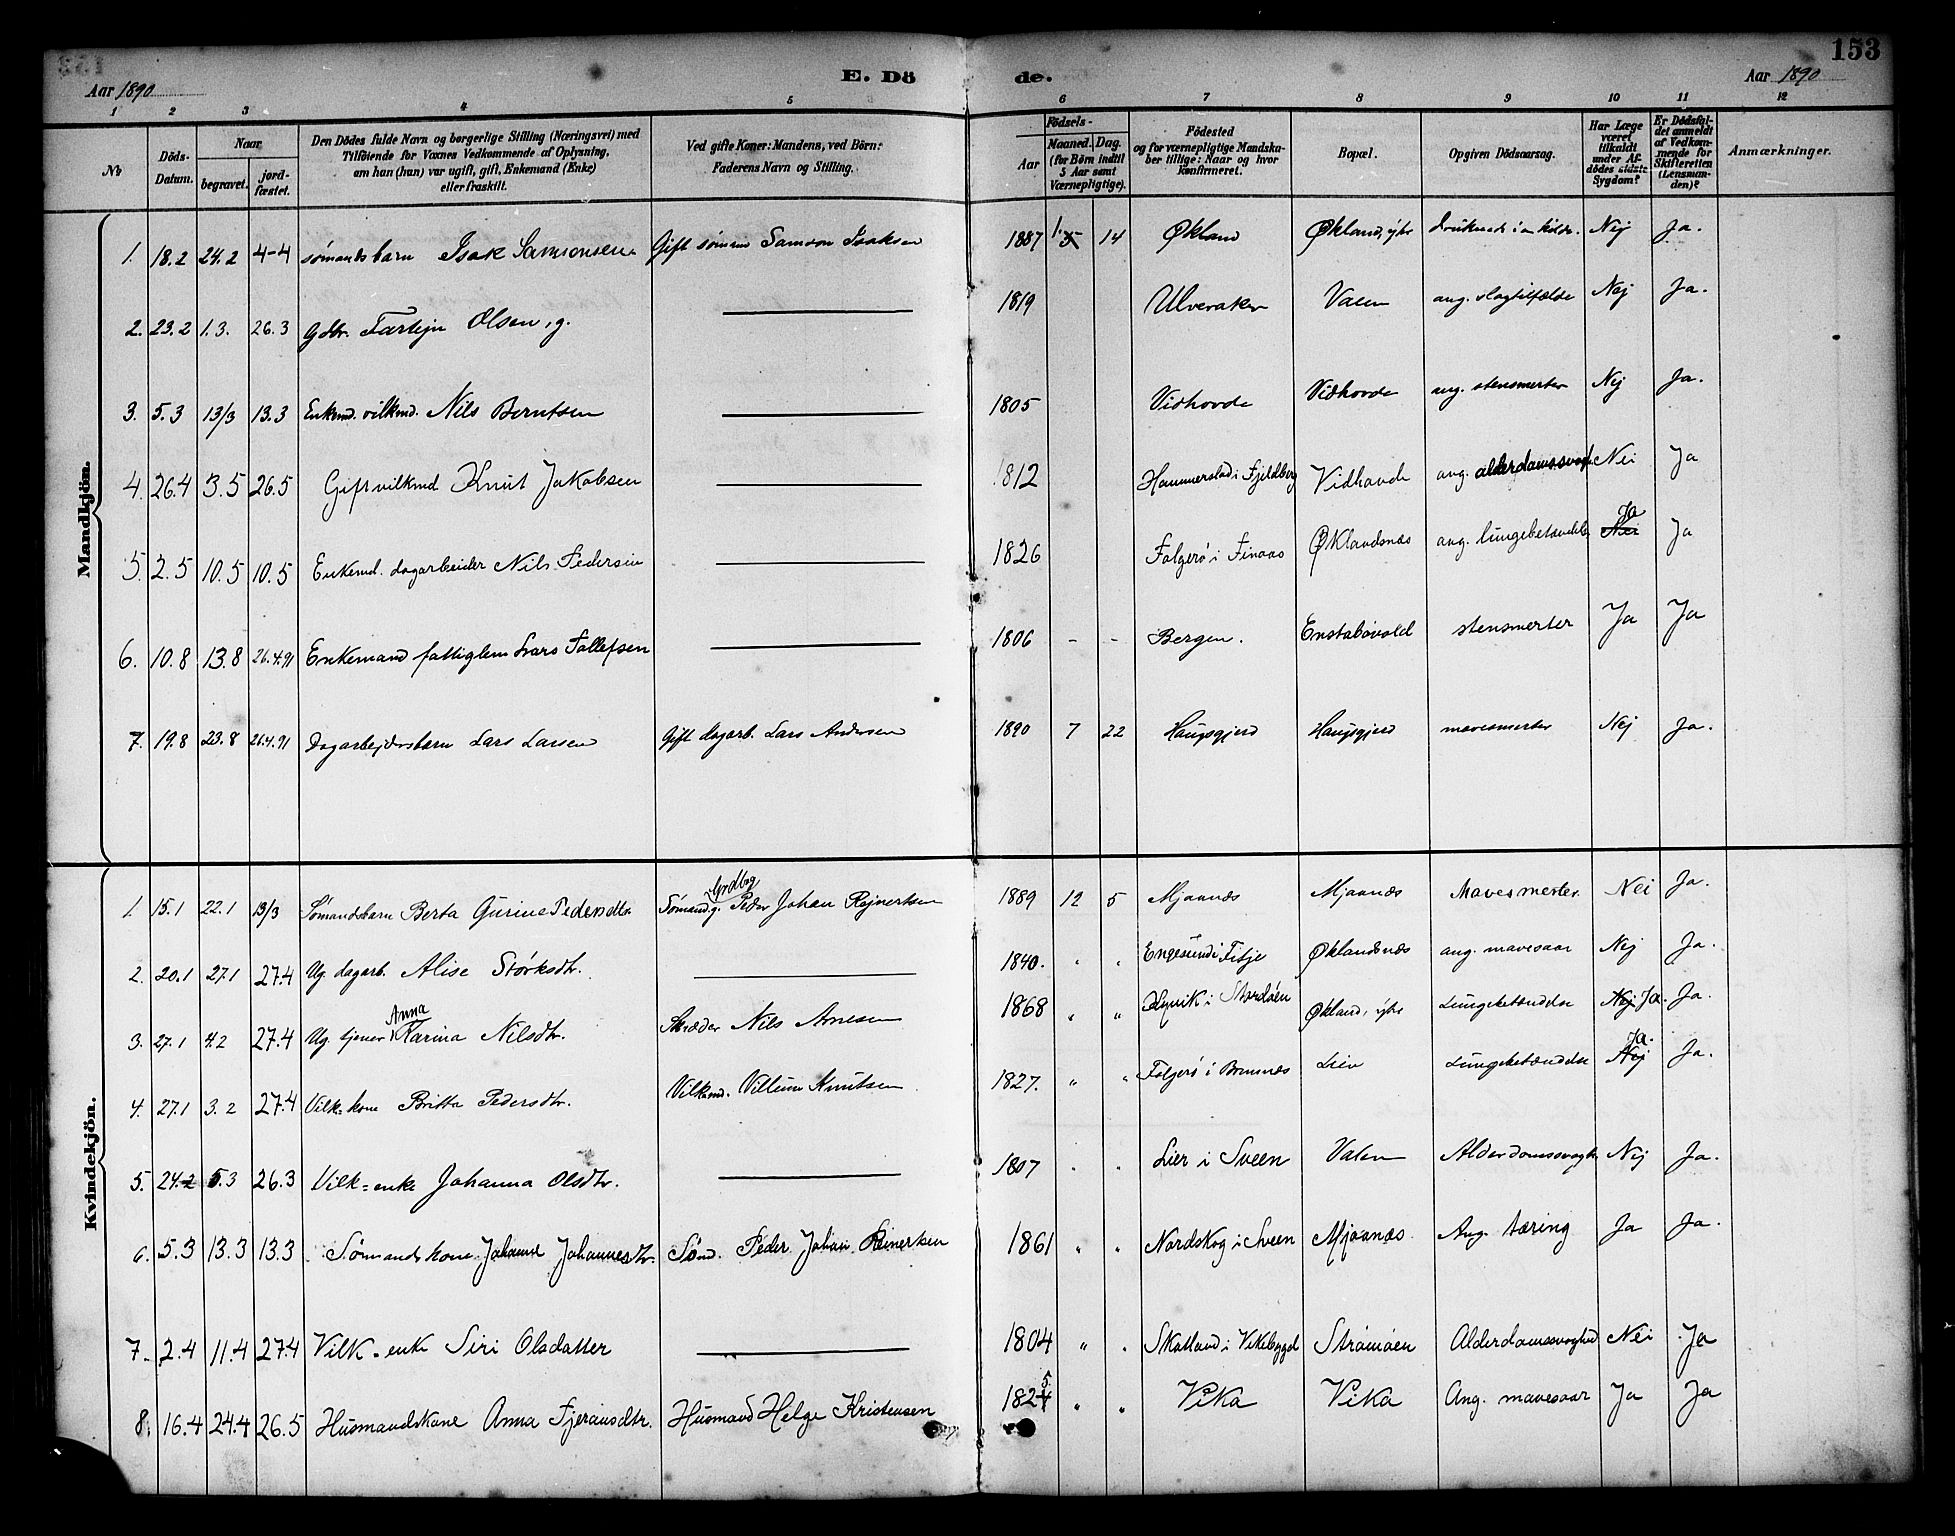 153
Aar 1890 E. Dö de. Aar 1890
1 2 3 4 5 6 7 8 9 10 11 12
No Döds-Datum. Naar begravet. jord-fæstet. Den Dödes fulde Navn og borgerlige Stilling (Næringsvei) med Tilföiende for Voxnes Vedkommende af Oplysning, om han (hun) var ugift, gift, Enkemand (Enke) eller fraskilt. Ved gifte Koner: Mandens, ved Börn: Faderens Navn og Stilling. Födsels- Aar Maaned. Dag. (for Börn indtil 5 Aar samt Værnepligtige). Födested og for værnepligtige Mandska-ber tillige: Naar og hvor konfirmeret. Bopæl. Opgiven Dödsaarsag. Har Læge været tilkaldt under Af-dödes sidste Sygdom? Er Dödsfal-det anmeldt af Vedkom-mende for Skifteretten (Lensman-den)? Anmærkninger.
Mandkjön.
1. 18.2 24.2 4-4 sømandsbarn Isak Samsonsen Gift sømm Samson Isaksen 1887 1. 14 Økland Økland, ytre druknede i en kilde. Nej Ja.
2. 23.2 1.3. 26.3 Gdbr. Torstejn Olsen, g. 1819 Ulveraker Valen ang. slagtilfælde Nej Ja.
3. 5.3 13/3 13.3 Enkemd. vilkmd. Nils Berntsen 1805 Vidhovde Vidhovde ang. stensmerter Nej Ja.
4. 26.4 3.5 26.5 Gift vilkmd Knut Jakobsen 1812 Hammersland i Fjeldberg Vidhovde ang. alderdomssvagh. Nei Ja
5. 2.5 10.5 10.5 Enkemd. dagarbeider Nils Pedersen 1826 Folgerø i Finaas Øklandsnæs ang. lungebetændelse Nei Ja Ja
6. 10.8 13.8 26.4.91 Enkemand fattiglem Lars Tollefsen 1806 - - Bergen. Enstabøvold stensmerter Ja Ja
7. 19.8 23.8 26.4.91 Dagarbejdersbarn Lars Larsen Gift dagarb. Lars Andersen 1890 7 22 Haugsgjerd Haugsgjerd mavesmerter Nej Ja.
Kvindekjön.
1. 15.1 22.1 13/3 Sømandsbarn Berta Gurine Pedersdtr. Sømand g. Peder Johan Rejnertsen 1889 12 5 Mjaanæs Mjaanæs Mavesmerter Nei Ja.
2. 20.1 27.1 27.4 Ug. dagarb. Alise Størksdtr. 1840. " " Engesund i Fitje Øklandsnæs ang. mavesaar Nej Ja.
3. 27.1 4.2 27.4 Ug. tjener Anna Karina Nilsdtr. Skræder Nils Arnesen 1868 " " i Stordøen Økland, ytre Lungebetændelse Nej Ja. Ja.
4. 27.1 3.2 27.4 Vilk=kone Britta Pedersdtr. Vilkmd. Villum Knutsen 1827. " " Folgerø i Bremnæs Lien Lungebetændelse Nej Ja. Ja.
5. 24.2 5.3 26.3 Vilk=enke Johanna Olsdtr. 1807 " " Lier i Sveen Valen Alderdomssvagh Nej Ja.
6. 5.3 13.3 13.3 Sømandskone Johanne Johannesdtr. Sømd. Peder Johan Reinertsen 1861 " " Nordskog i Sveen Mjaanæs Ang. tæring Ja Ja.
7. 2.4 11.4 27.4 Vilk-enke Siri Olsdatter 1804 " " Skatland i Vikebygd Strømøen Alderdomssvaghed Nei Ja
8. 16.4 24.4 26.5 Husmandskone Anna Fjeransdtr. Husmand Helge Kristensen 1825 " " Vika Vika Ang. mavesaar Ja Ja